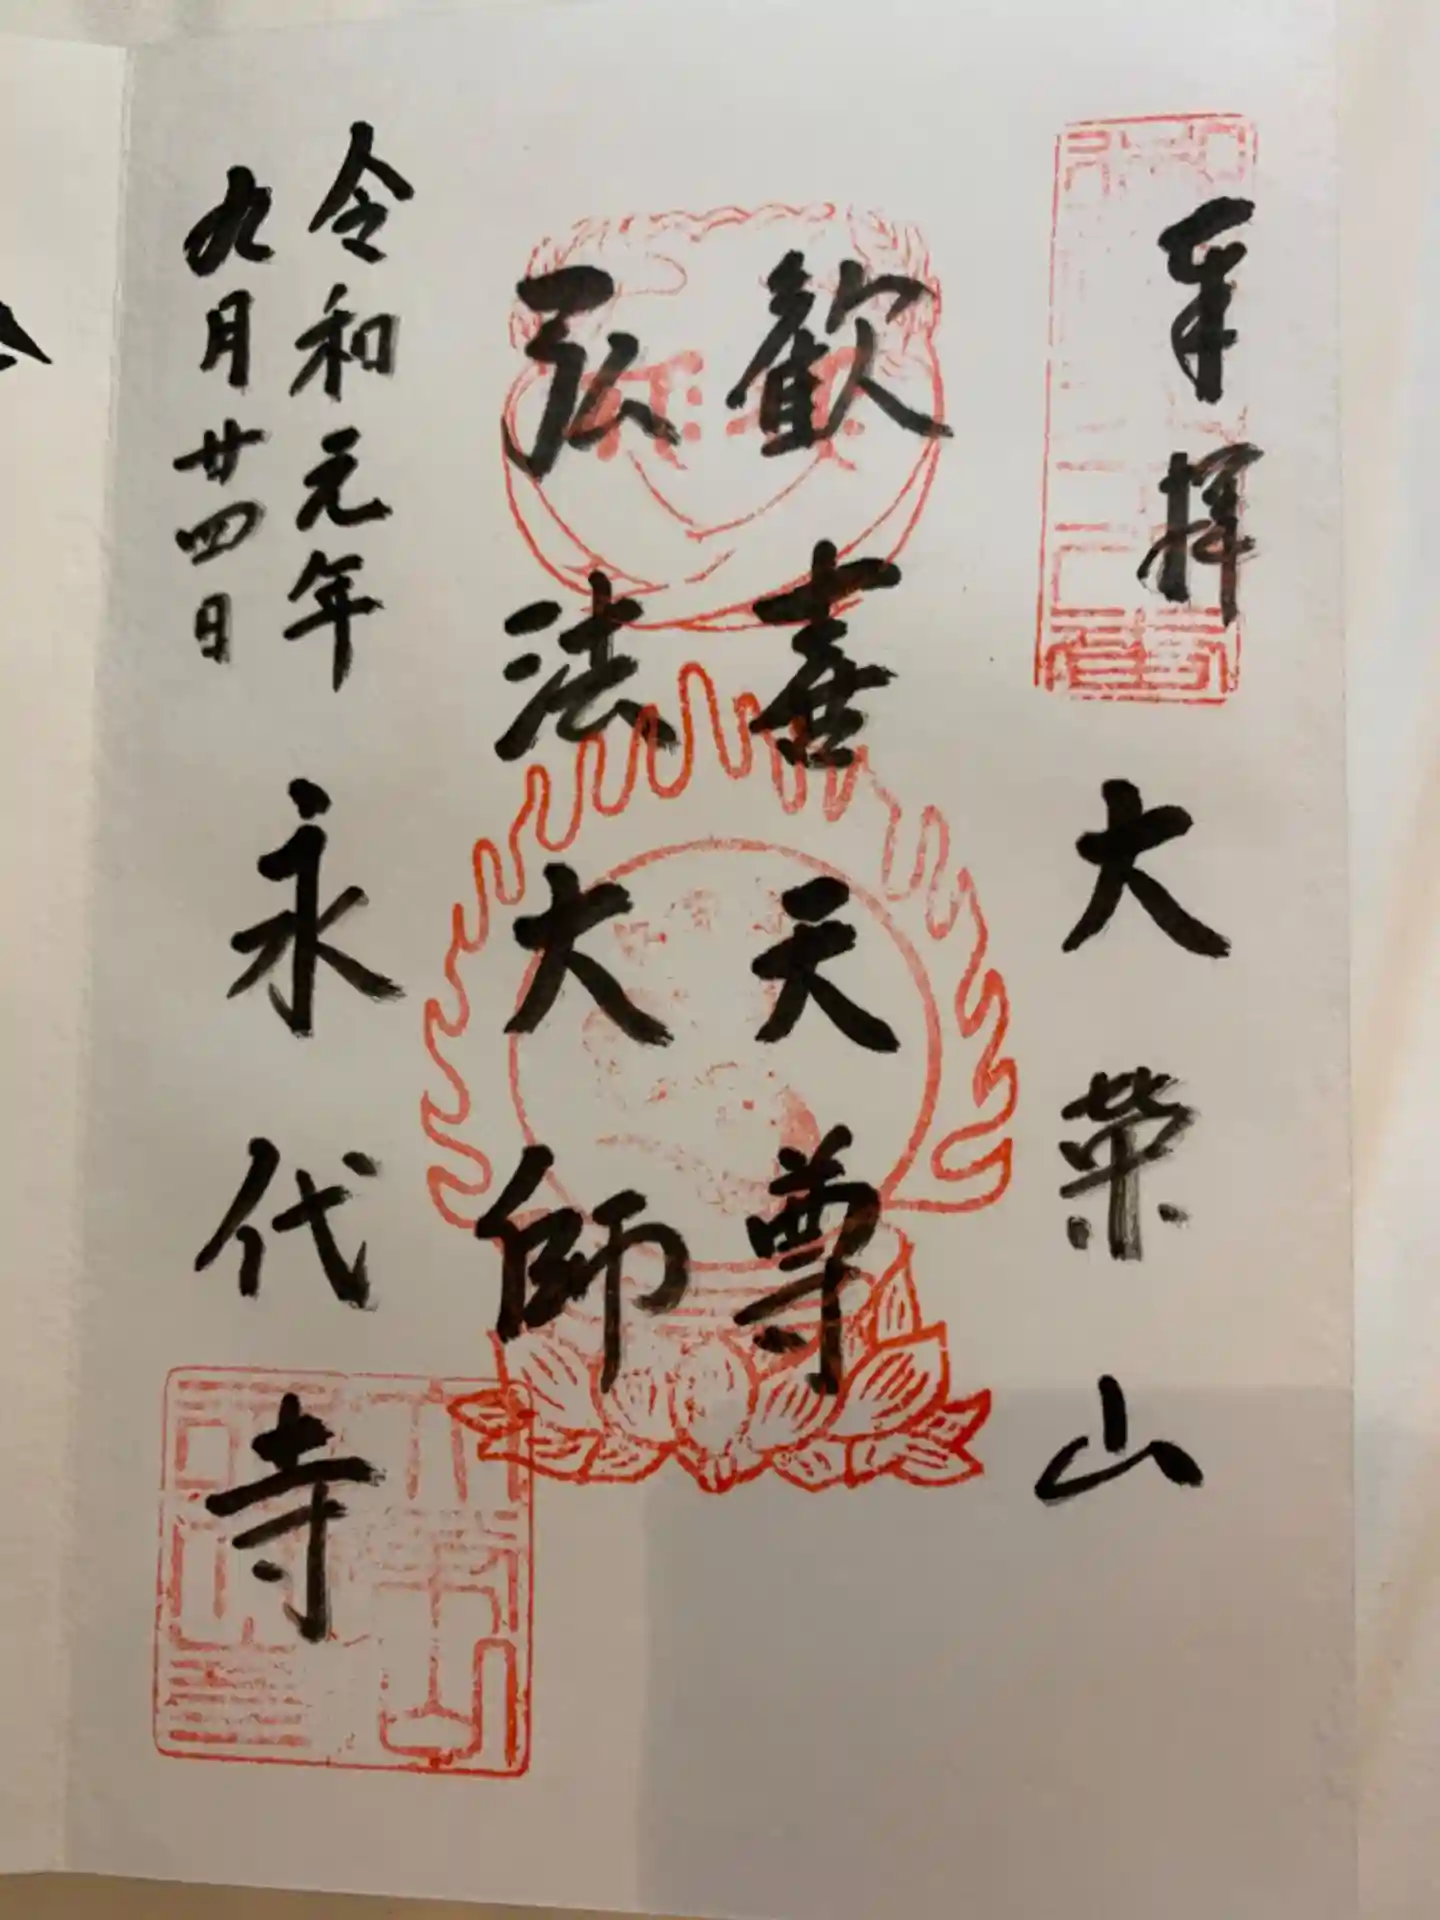 奉拝
大榮山
歓喜天尊
弘法大師
令和元年
九月廿四日
永代寺